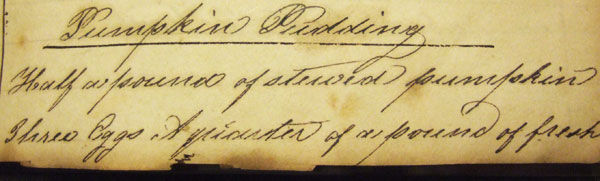 Pumpkin Pudding
Half a pound of stewed pumpkin
Three Eggs. A quarter of a pound of fresh